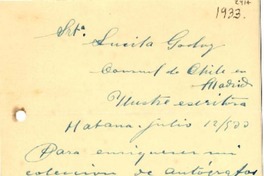 1933.
Srta
Lucila Godoy
Consul de Chile en
Madrid
Ilustre escritora
Habana-julio 12/933
Para enriquecer mi
coleccion de autógrafos